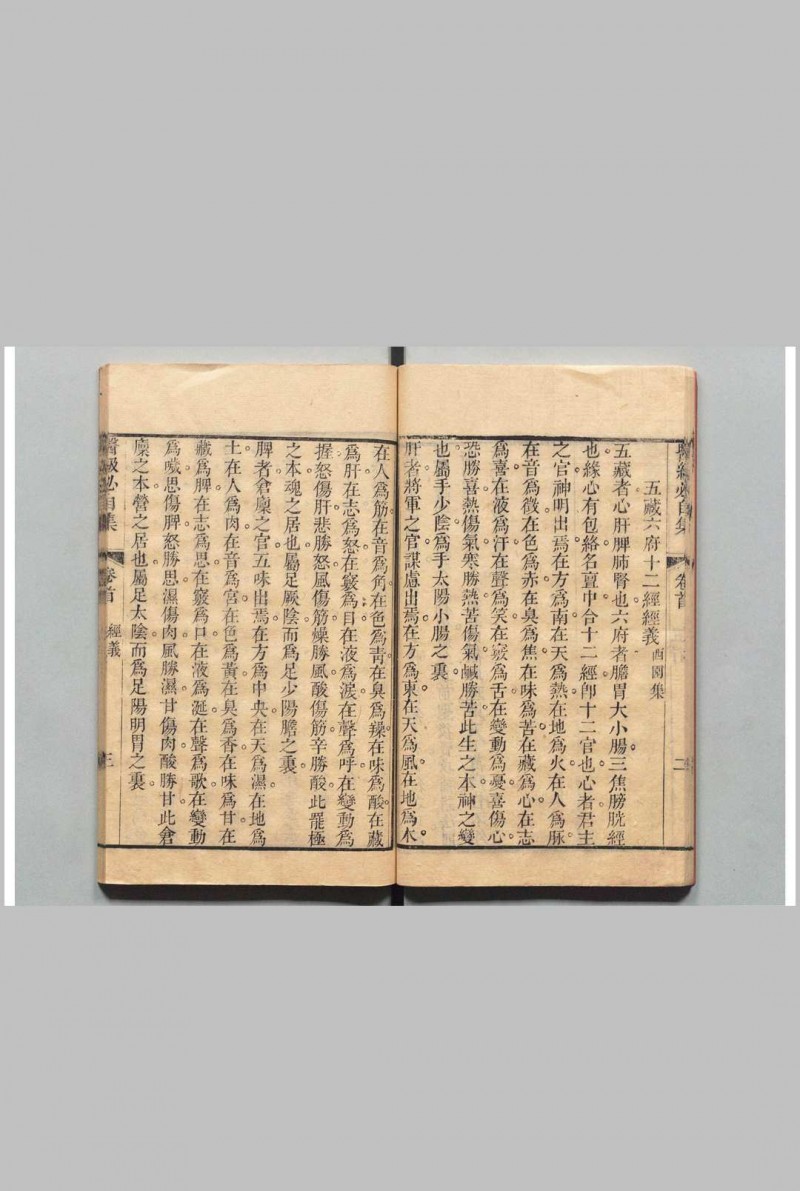 醫級必自集 卷首 二
五藏六府十二經經義 西園集
五藏者心肝脾肺腎也六府者膽胃大小腸三焦膀胱經
也緣心有包絡名亶中合十二經卽十二官也心者君主
之官神明出焉在方爲南在天爲熱在地爲火在人爲脈
在音爲徵在色爲赤在臭爲焦在味爲苦在藏爲心在志
爲喜在液爲汗在聲爲笑在竅爲舌在變動爲憂喜傷心
恐勝喜熱傷氣寒勝熱苦傷氣鹹勝苦此生之本神之變
也屬手少陰爲手太陽小腸之裏
肝者將軍之官謀慮出焉在方爲東在天爲風在地爲木
在人爲筋在音爲角在色爲青在臭爲臊在味爲酸在藏
爲肝在志爲怒在竅爲目在液爲淚在聲爲呼在變動爲
握怒傷肝悲勝怒風傷筋燥勝風酸傷筋辛勝酸此罷極
之本魂之居也屬足厥陰而爲足少陽膽之裏
脾者倉廩之官五味出焉在方爲中央在天爲濕在地爲
土在人爲肉在音爲宮在色爲黃在臭爲香在味爲甘在
藏爲脾在志爲思在竅爲口在液爲涎在聲爲歌在變動
爲噦思傷脾怒勝思濕傷肉風勝濕甘傷肉酸勝甘此倉
廩之本營之居也屬足太陰而爲足陽明胃之裏
醫級必自集 卷首 經義 三